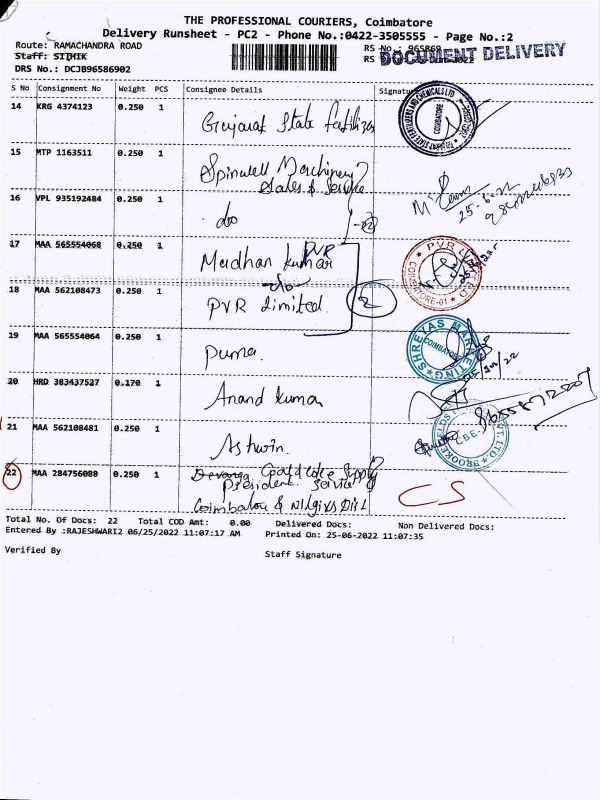 THE PROFESSIONAL COURIERS, Coimbatore
Delivery Runsheet - PC2 - Phone No.:0422-3505555 - Page No.:2
Route: RAMACHANDRA ROAD
RS No. 965869
DOCUMENT DELIVERY
Staff:
RS
DRS No.: DCJB96586902
S No Consignment No Weight PCS Consignee Details Signature
14 KRG 4374123 0.250 1 Gujarat State Fertilizer
COIMBATORE
15 MTP 1163511 0.250 1 Spinwell Machinery
Sales & Service
16 VPL 935192484 0.250 1 do
25.6.22
17 MAA 565554068 0.250 1 Madhan Kumar PVR
do
PVR LIMITED
COIMBATORE-01
18 MAA 562108473 0.250 1 PVR Limited 2
19 MAA 565554064 0.250 1 Puma.
SHREYAS MARKETING
COIMBATORE
20 HRD 383437527 0.170 1 Anand Kumar
21 MAA 562108481 0.250 1 Ashwin.
CBE
22 MAA 284756088 0.250 1
President Service
Coimbatore & Nilgiris Dist
CS
Total No. Of Docs: 22 Total COD Amt: 0.00 Delivered Docs: Non Delivered Docs:
Entered By :RAJESHWARI2 06/25/2022 11:07:17 AM Printed On: 25-06-2022 11:07:35
Verified By Staff Signature